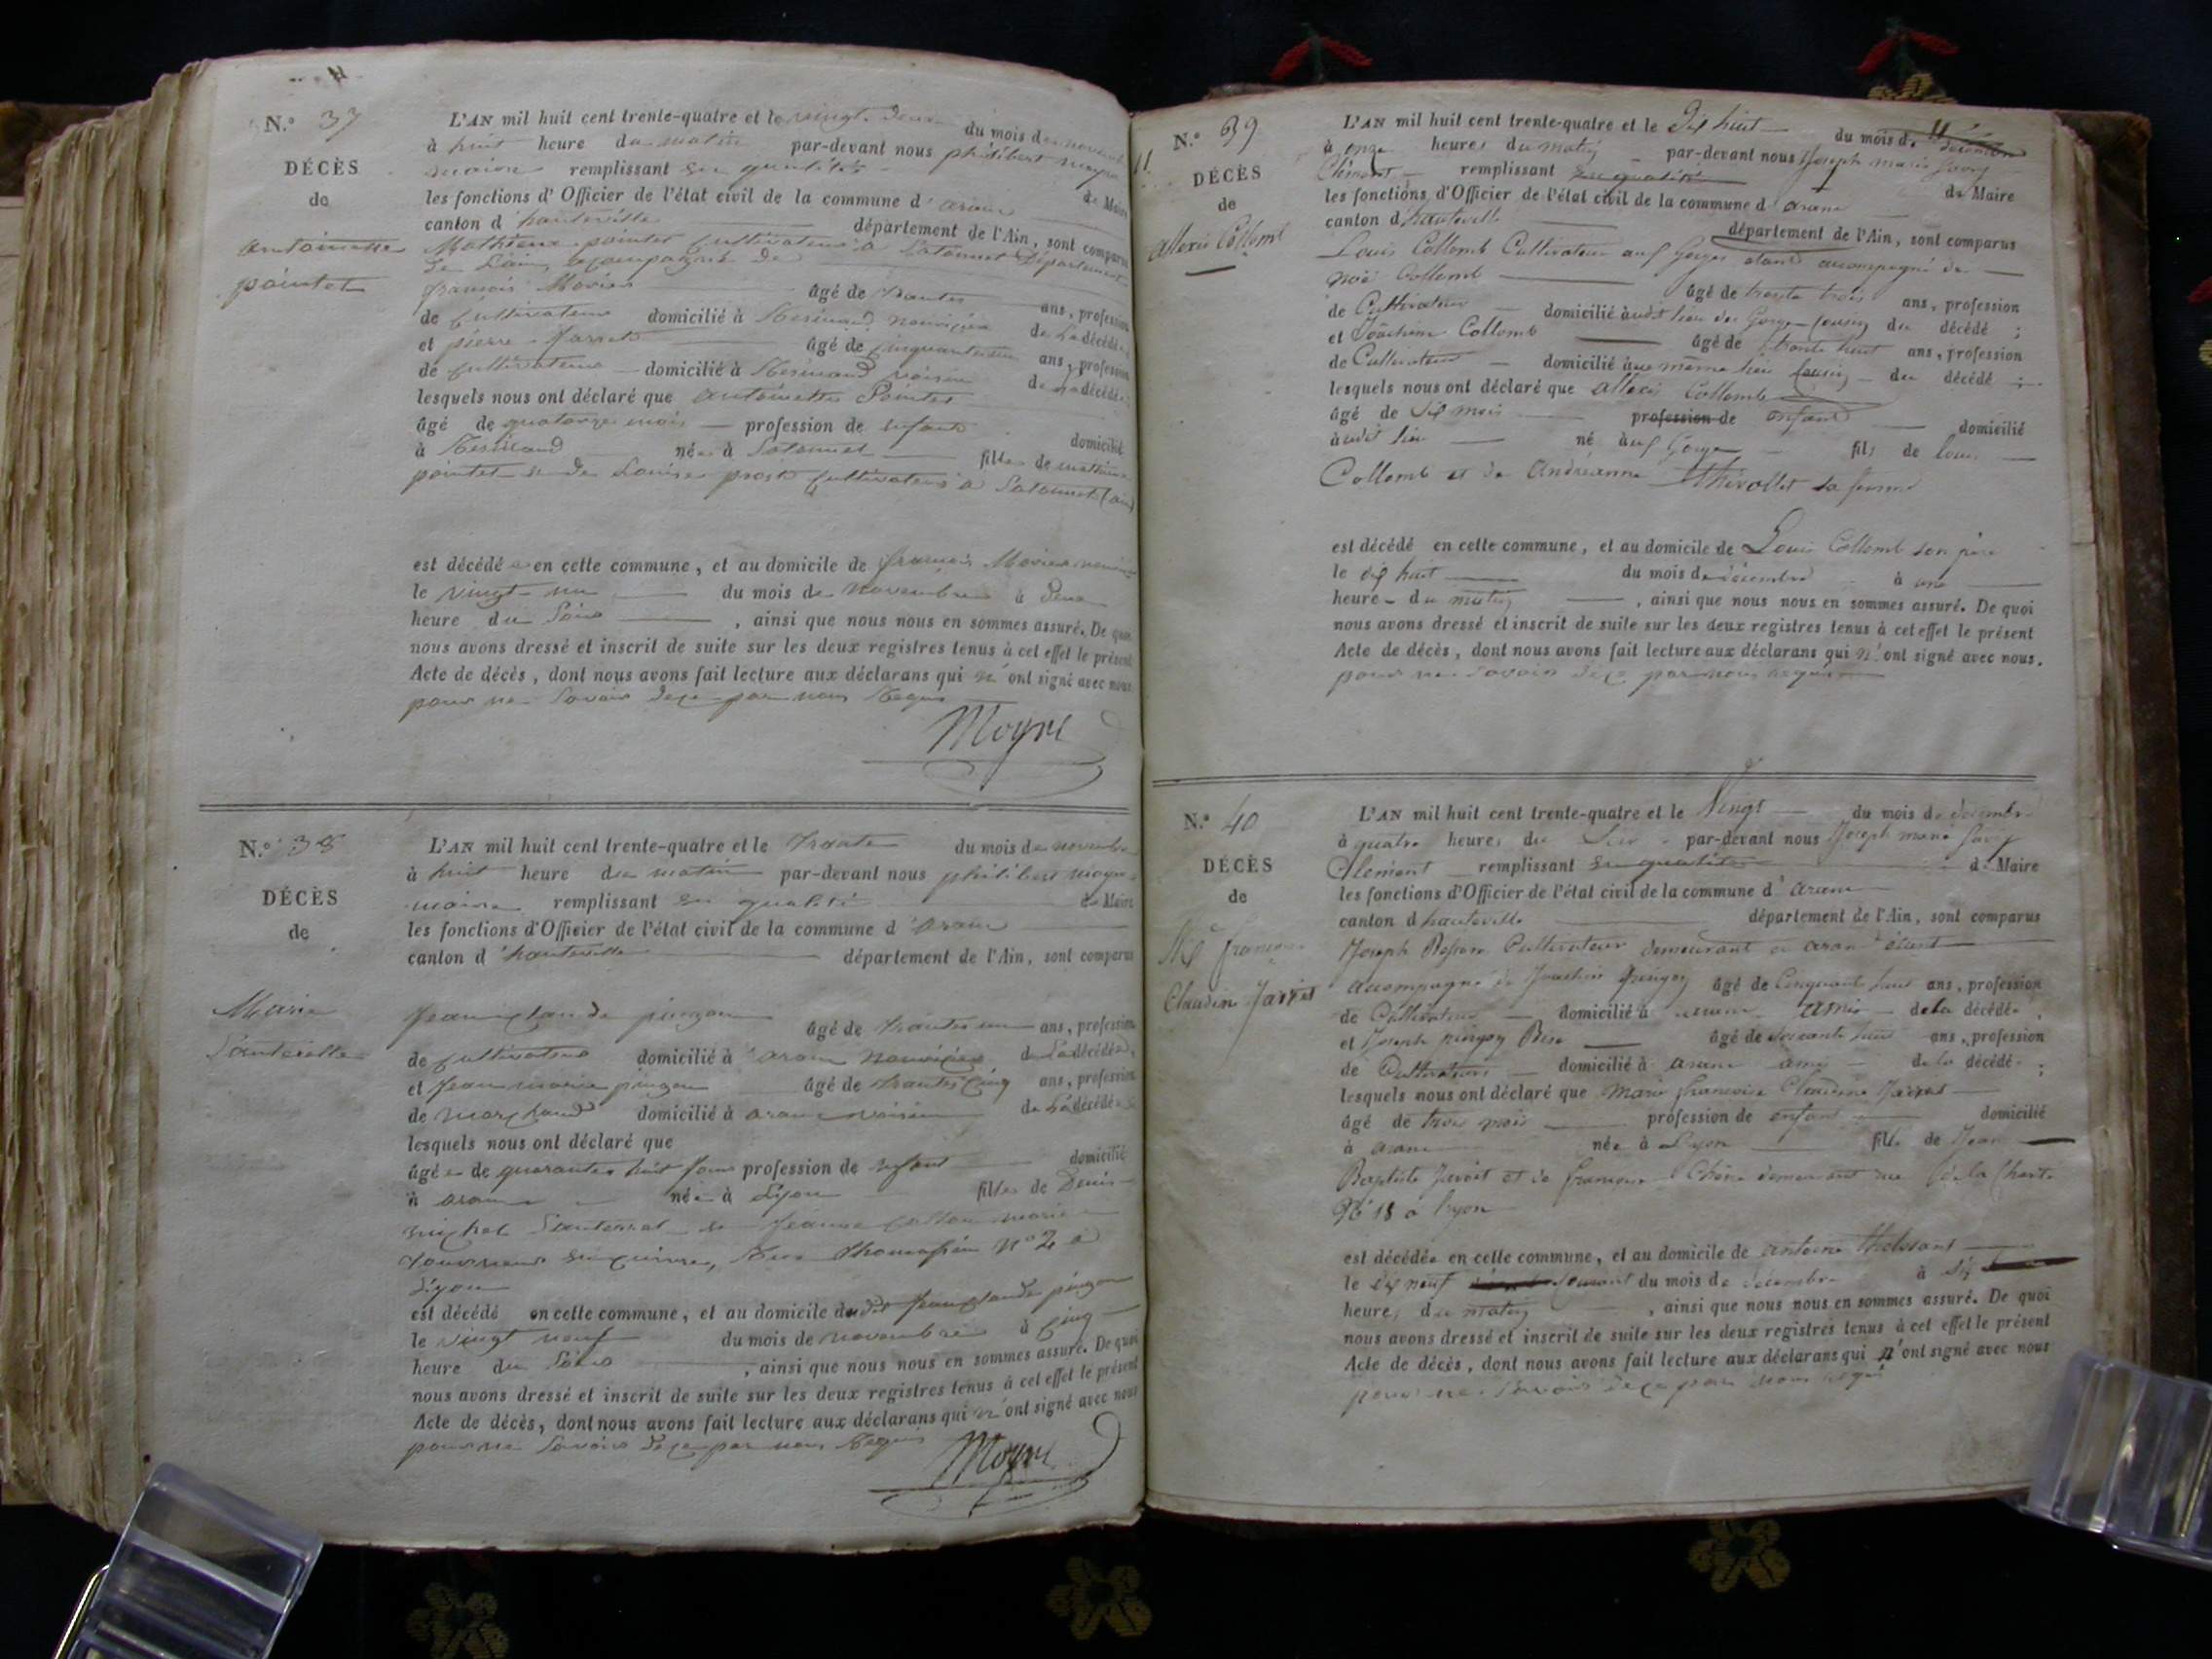 N.° 37
DÉCÈS
de
antoinette
pointet
L'AN mil huit cent trente-quatre et le vingt deux du mois de novembre
à huit heure du matin par-devant nous philibert moyne
maire remplissant en qualité de Maire
les fonctions d'Officier de l'état civil de la commune d'aranc
canton d'hauteville département de l'Ain, sont comparus
Mathieux pointet Cultivateur à Département
de L'ain acompagné de
françois Movier âgé de trante ans, profession
de Cultivateur domicilié à Resinand nouricier de La décédée
et pierre Jarret âgé de Cinquante ans, profession
de Cultivateur domicilié à Resinand voisin de La décédée
lesquels nous ont déclaré que antoinette Pointet
âgé de quatorze mois profession de enfant domicilié
à Resinand née à fille de mathieux
pointet et de Louise prost Cultivateurs à
est décédée en cette commune, et au domicile de françois Movier
le vingt un du mois de novembre à deux
heure du Soir, ainsi que nous nous en sommes assuré. De quoi
nous avons dressé et inscrit de suite sur les deux registres tenus à cet effet le présent
Acte de décès, dont nous avons fait lecture aux déclarans qui n'ont signé avec nous
pour ne Savoir de ce par nous Requis
Moyne
N.° 38
DÉCÈS
de
Marie
L'AN mil huit cent trente-quatre et le trante du mois de novembre
à huit heure du matin par-devant nous philibert moyne
maire remplissant en qualité de Maire
les fonctions d'Officier de l'état civil de la commune d'aranc
canton d'hauteville département de l'Ain, sont comparus
Jean Claude pingon âgé de trante un ans, profession
de Cultivateur domicilié à aranc nouricier de La décédée,
et Jean marie pingon âgé de trante Cinq ans, profession
de marchand domicilié à aranc voisin de La décédée
lesquels nous ont déclaré que
âgée de quarante huit Jour profession de enfant domicilié
à aranc née à Lyon fille de Denis
michel et Jeanne
Rue thomassin n° 2 à
Lyon
est décédé en cette commune, et au domicile dudit Jean Claude pingon
le vingt neuf du mois de novembre à Cinq
heure du Soir, ainsi que nous nous en sommes assuré. De quoi
nous avons dressé et inscrit de suite sur les deux registres tenus à cet effet le présent
Acte de décès, dont nous avons fait lecture aux déclarans qui n'ont signé avec nous
pour ne Savoir de ce par nous Requis
Moyne
11
N.° 39
DÉCÈS
de
Allexis Collomb
L'AN mil huit cent trente-quatre et le Dix huit du mois de décembre
à onze heures du matin par-devant nous Joseph marie Savey
Clément remplissant en qualité de Maire
les fonctions d'Officier de l'état civil de la commune d'aranc
canton d'hauteville département de l'Ain, sont comparus
Louis Collomb Cultivateur aux Gorges étant accompagné de
Noé Collomb âgé de trente trois ans, profession
de Cultivateur domicilié audit lieu des Gorges Cousin du décédé;
et Joachim Collomb âgé de trente huit ans, profession
de Cultivateur domicilié au même lieu Cousin du décédé;
lesquels nous ont déclaré que allexis Collomb
âgé de dix mois profession de enfant domicilié
audit lieu né aux Gorges fils de Louis
Collomb et de Andréanne Thevollet sa femme
est décédé en cette commune, et au domicile de Louis Collomb son père
le dix huit du mois de décembre à une
heure du matin, ainsi que nous nous en sommes assuré. De quoi
nous avons dressé et inscrit de suite sur les deux registres tenus à cet effet le présent
Acte de décès, dont nous avons fait lecture aux déclarans qui n'ont signé avec nous.
pour ne savoir de ce par nous requis
N.° 40
DÉCÈS
de
Me françoise
Claudine Jarret
L'AN mil huit cent trente-quatre et le Vingt du mois de décembre
à quatre heures du Soir par-devant nous Joseph marie Savey
Clément remplissant en qualité de Maire
les fonctions d'Officier de l'état civil de la commune d'aranc
canton d'hauteville département de l'Ain, sont comparus
Joseph Cultivateur demeurant à aranc étant
accompagné de âgé de Cinquant huit ans, profession
de Cultivateur domicilié à aranc amis de la décédée,
et Joseph pingon âgé de soixante huit ans, profession
de Cultivateur domicilié à aranc ami de la décédée;
lesquels nous ont déclaré que Marie françoise Claudine Jarret
âgé de trois mois profession de enfant domicilié
à aranc née à Lyon fille de Jean
Baptiste Jarret et de françoise Chêne demeurant rue de la Charte
N° 18 à Lyon
est décédée en cette commune, et au domicile de antoine
le dix neuf Courant du mois de décembre à dix
heures du matin, ainsi que nous nous en sommes assuré. De quoi
nous avons dressé et inscrit de suite sur les deux registres tenus à cet effet le présent
Acte de décès, dont nous avons fait lecture aux déclarans qui n'ont signé avec nous
pour ne savoir de ce par nous requis